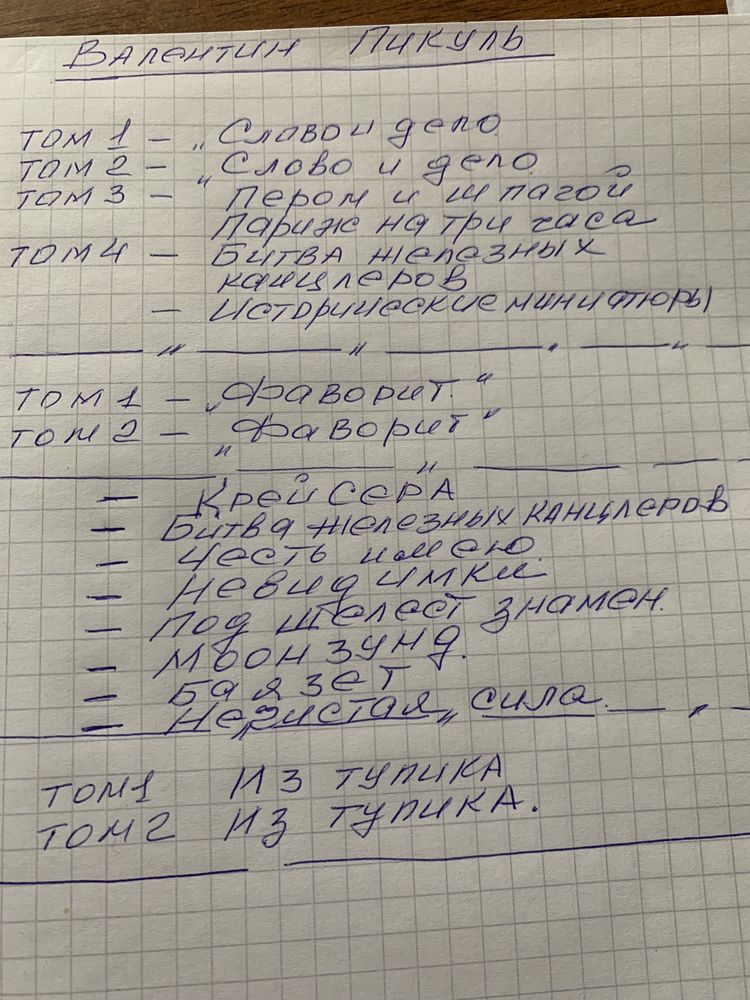 Валентин Пикуль
том 1 – „Слово и дело
том 2 – „Слово и дело
том 3 – Пером и шпагой
Париж на три часа
том 4 – Битва железных
канцлеров
– Исторические миниатюры
том 1 – „Фаворит."
том 2 – „Фаворит"
– Крейсера
– Битва железных канцлеров
– Честь имею.
– Невидимки
– Под шелест знамен.
– Моонзунд.
– Баязет
– Нечистая сила.
том 1 Из тупика
том 2 Из тупика.